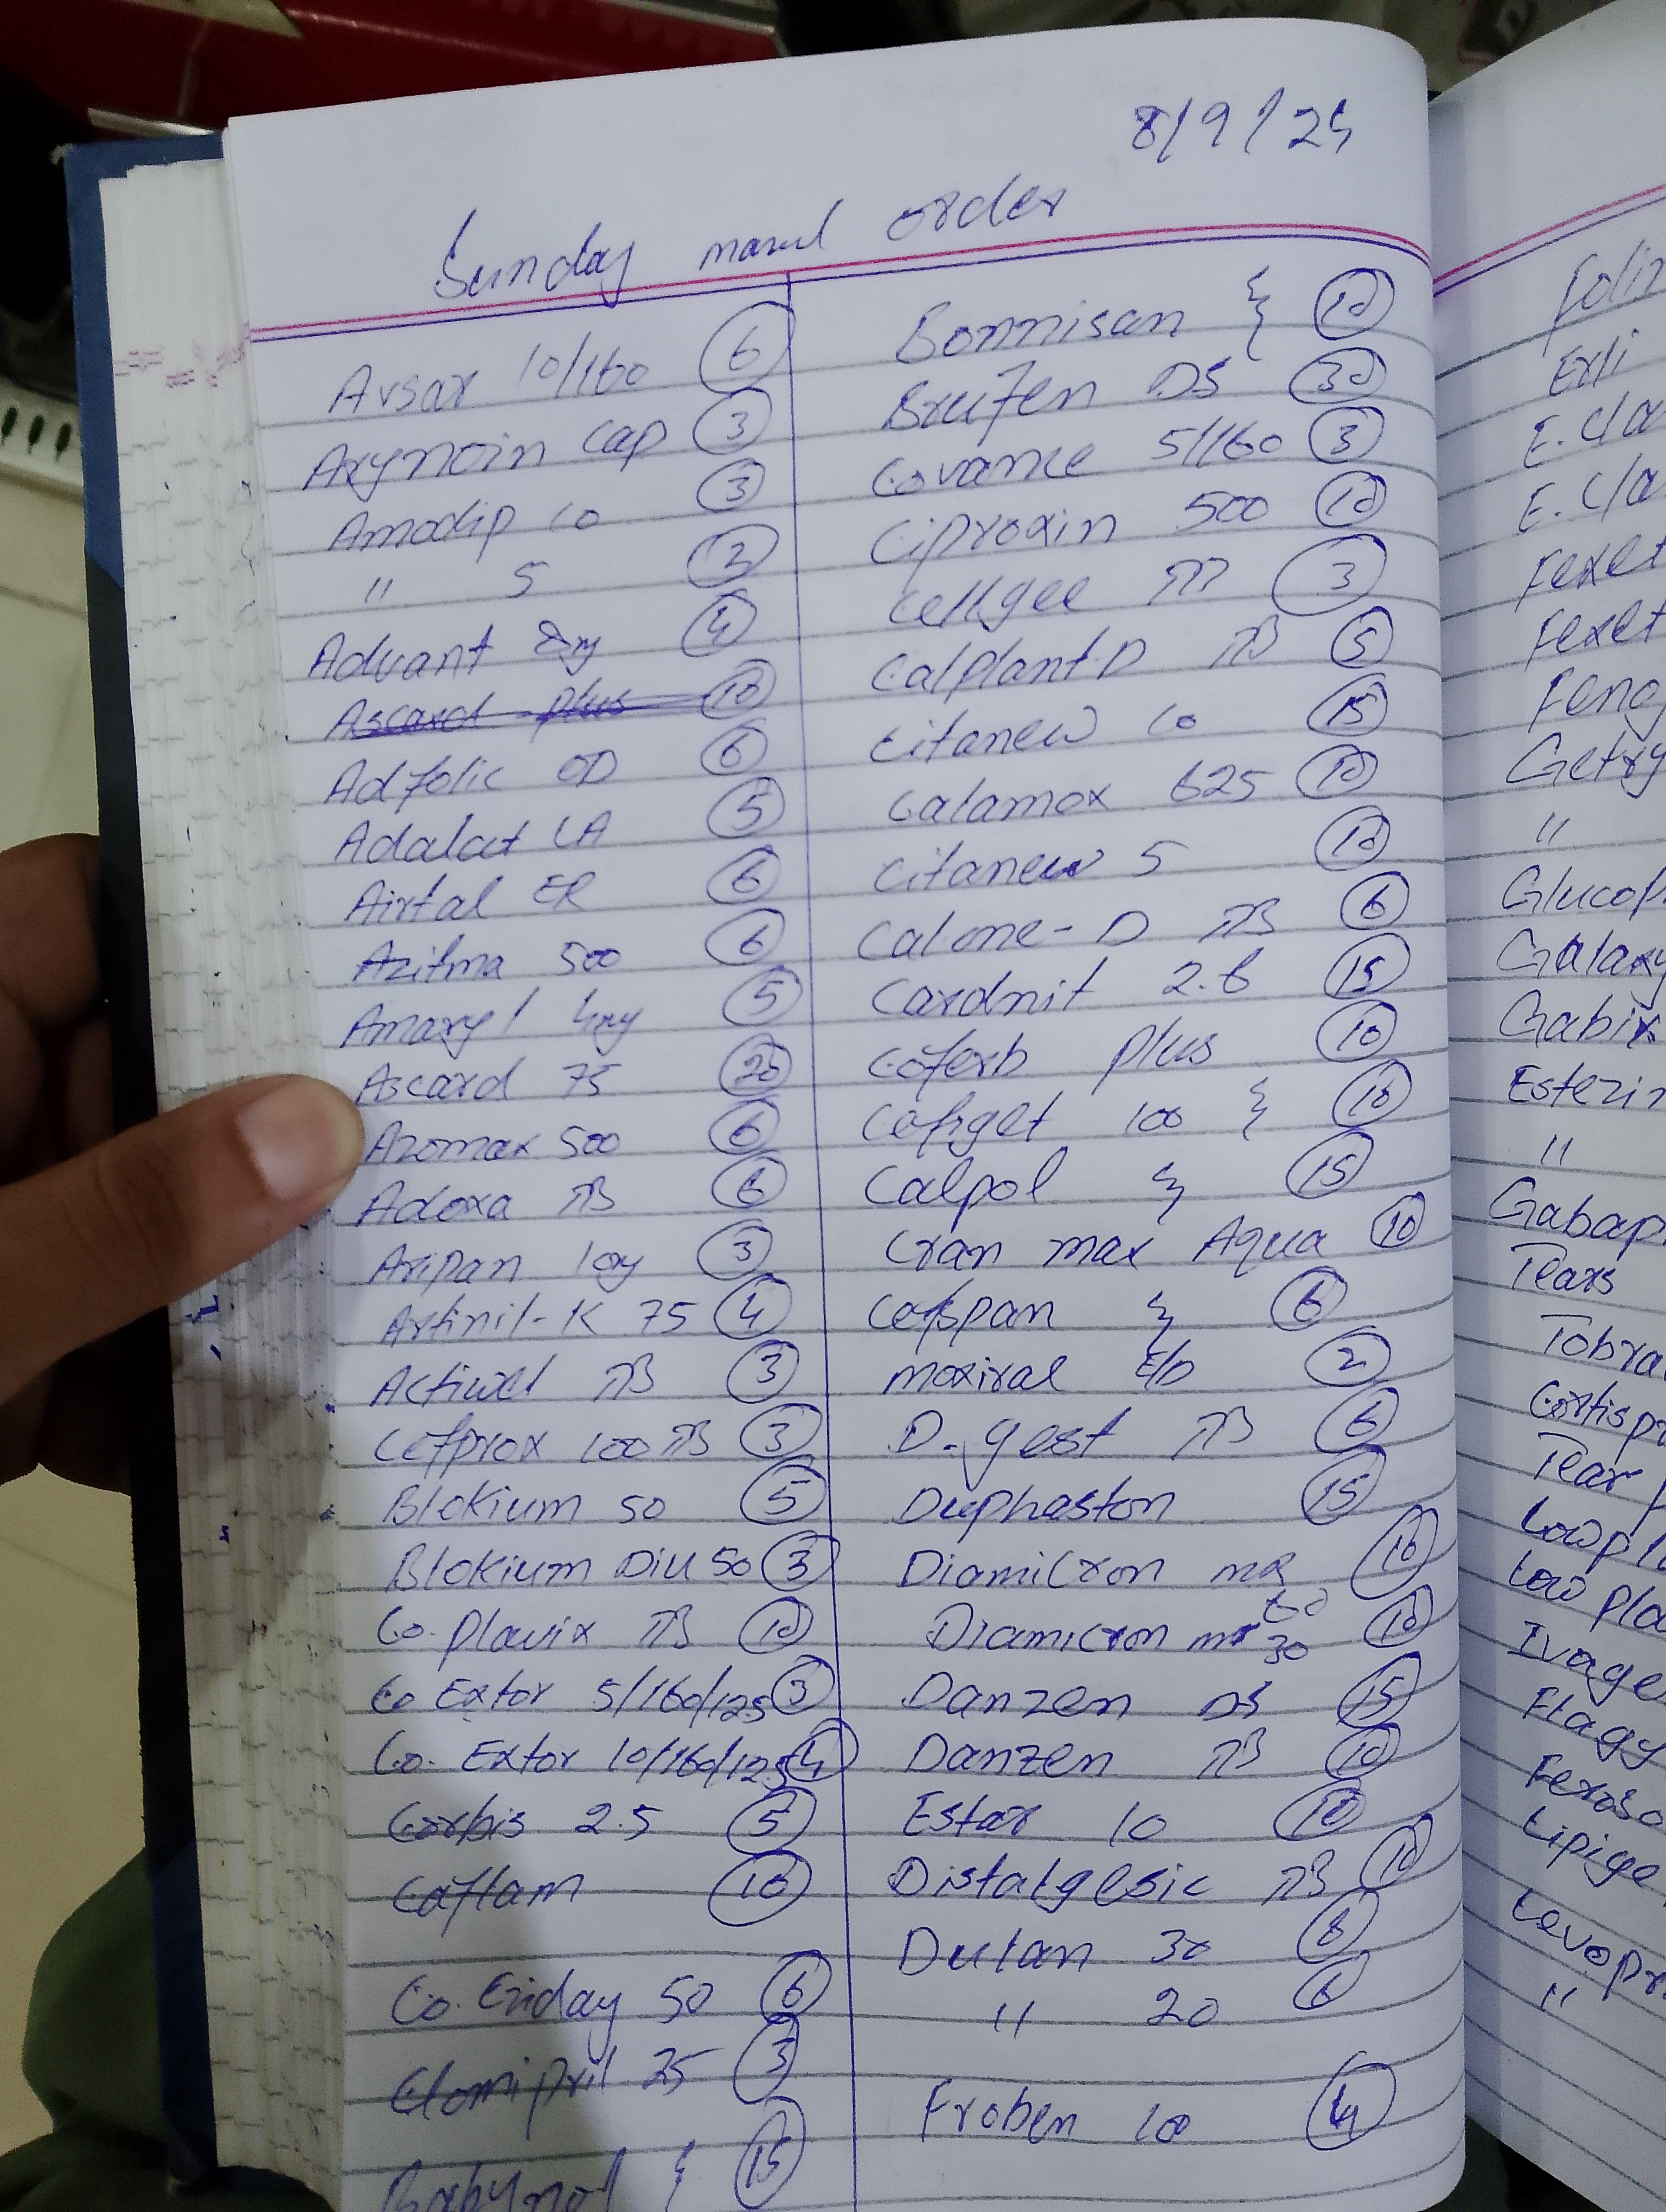 8/9/24
Sunday order
Avsar 10/160 6
Axynoin cap 3
Amodip 10 3
" 5 2
Advant 4
Ascard plus 10
Adfolic OD 6
Adalat LA 5
Airtal ER 6
Azitma 500 6
Amaryl 4mg 5
Ascard 75 20
Azomax 500 6
Adoxa TB 6
Aripan 10mg 3
Artinil-K 75 4
Actiwel TB 3
Cefprox 100 TB 3
Blokium 50 5
Blokium Diu 50 3
Co-Plavix TB 10
Co Extor 5/160/12.5 3
Co. Extor 10/160/12.5 4
Corbis 2.5 5
Caflam 10
Co. Eziday 50 6
Clomipril 25 3
Babynol 15
Bonnisan 10
Brufen DS 30
Covance 5/160 3
Ciproxin 500 10
Cellgee 3
Calplant-D TB 5
Citanew 10 15
Calamox 625 10
Citanew 5 10
Calone-D TB 6
Cardnit 2.6 15
Coferb plus 10
Cefiget 100 10
Calpol 15
Cran max Aqua 10
Cefspan 6
moxival E/D 2
D-gest TB 6
Duphaston 15
Diamicron MR 60 10
Diamicron mr 30 10
Danzen DS 15
Danzen TB 10
Estar 10 10
Distalgesic TB 10
Dulan 30 8
" 20 6
Froben 100 4
Erli
E.cla
E.cla
Fexet
Fexet
Getry
"
Glucop
Galaxy
Gabix
Estezin
"
Gabap
Tears
Tobra
Cortisp
Tear
Lowpla
Low pla
Ivage
Flagy
Feroso
Lipige
Levopr
"